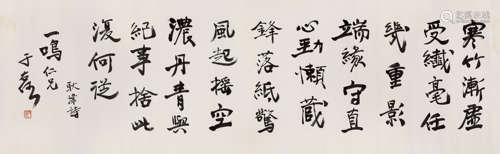 寒竹漸虛
受纖毫任
幾重影
端緣守直
心勁懶藏
鋒落紙驚
風起搖空
濃丹青與
紀事捨此
復何從
耿湋詩
一鳴仁兄
于